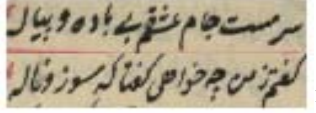 سرمست جام عشقم بی باده و پیاله
گفتم ز من چه خواهی گفتا که سوز و ناله